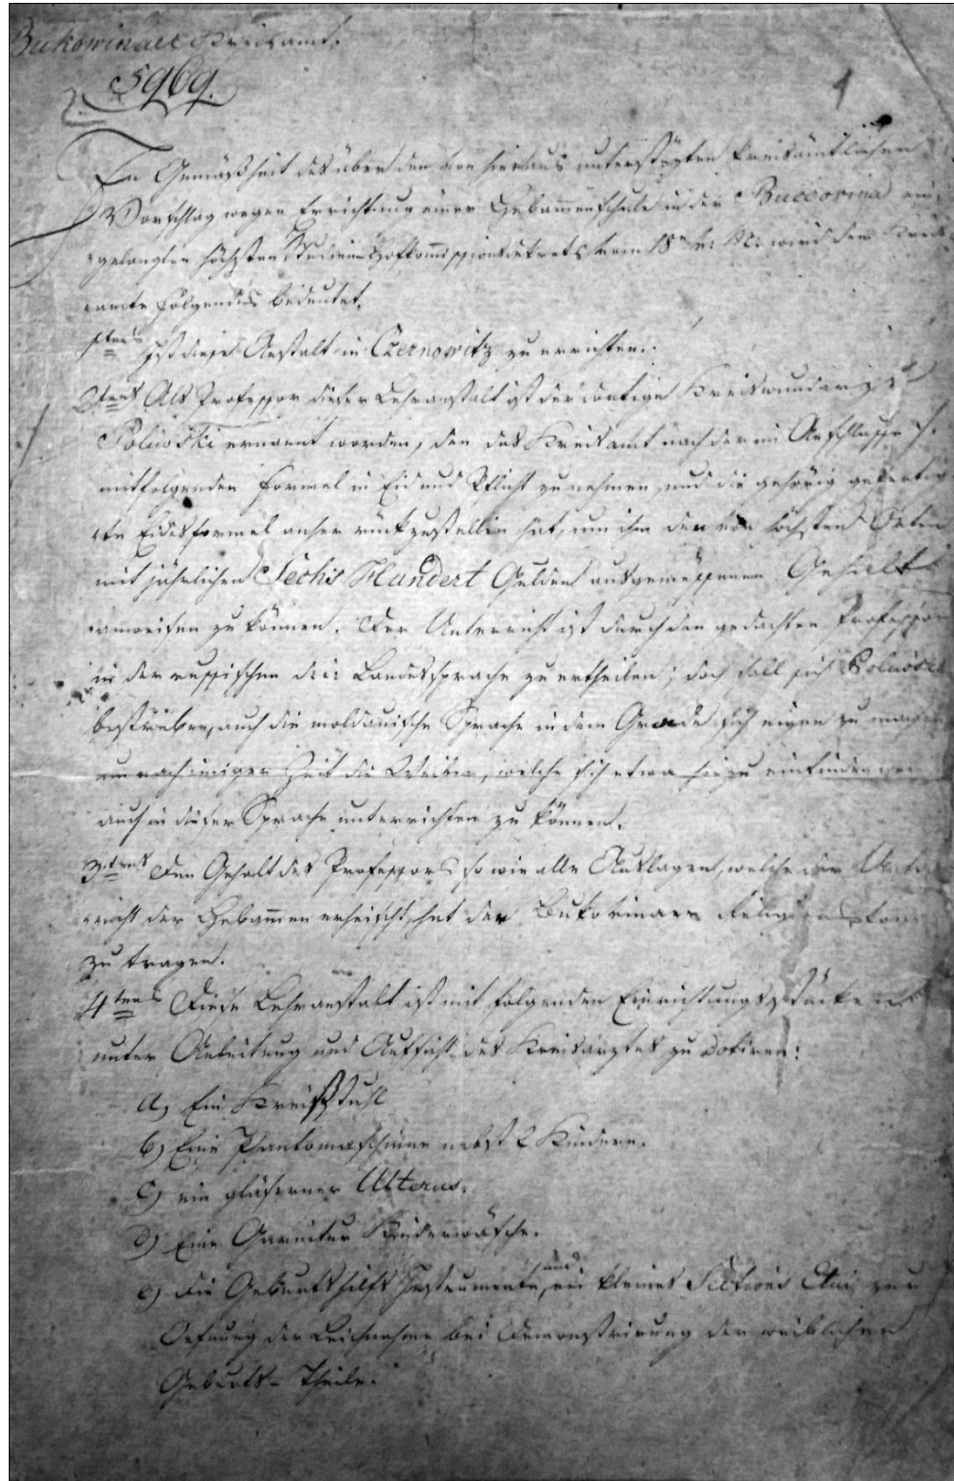 Bukowinaer Kreisamt.
5969.
1
In Gemäßheit des über den von hieraus unterstützten kreisämtlichen
Vorschlag wegen Errichtung einer Hebammenschule in der Buccovina ein¬
gelangten höchsten Studien Hofkommissionsdekrets vom 18ten wird dem Kreis¬
amte Folgendes bedeutet.
1tens Ist diese Anstalt in Czernowitz zu errichten.
2tens Als Professor dieser Lehranstalt ist der dortige Kreiswundarzt
ernannt worden, den das Kreisamt nach der im Anschluße
mitfolgenden Formel in Eid und Pflicht zu nehmen, und die gehörig gefertig¬
te Eidesformel anher rückzustellen hat, um ihm den von höchsten Orten
mit jährlichen Sechs Hundert Gulden ausgemessenen Gehalt
anweisen zu können. Der Unterricht ist durch den gedachten Professor
in der russischen als Landessprache zu ertheilen; doch soll sich
bestreben, auch die moldauische Sprache in dem Grade sich eigen zu machen
um nach einiger Zeit die Weiber, welche sich etwa hiezu einfinden
auch in dieser Sprache unterrichten zu können.
3tens Den Gehalt des Professors, so wie alle Auslagen, welche der Unter¬
richt der Hebammen erheischt, hat der Bukowinaer Religionsfond
zu tragen.
4tens Diese Lehranstalt ist mit folgenden Einrichtungsstücken
unter Anleitung und Aufsicht des Kreisarztes zu dotiren:
a) Ein Kreißstuhl
b) Eine Phantomaschine nebst 2 Kindern.
c) ein gläserner Utterus.
d) Eine Garnitur Kinderwäsche.
e) Die Geburtshilfs Instrumente, und ein kleines Sections Etui zur
Oefnung der Leichname bei Demonstrirung der weiblichen
Geburts-Theile.